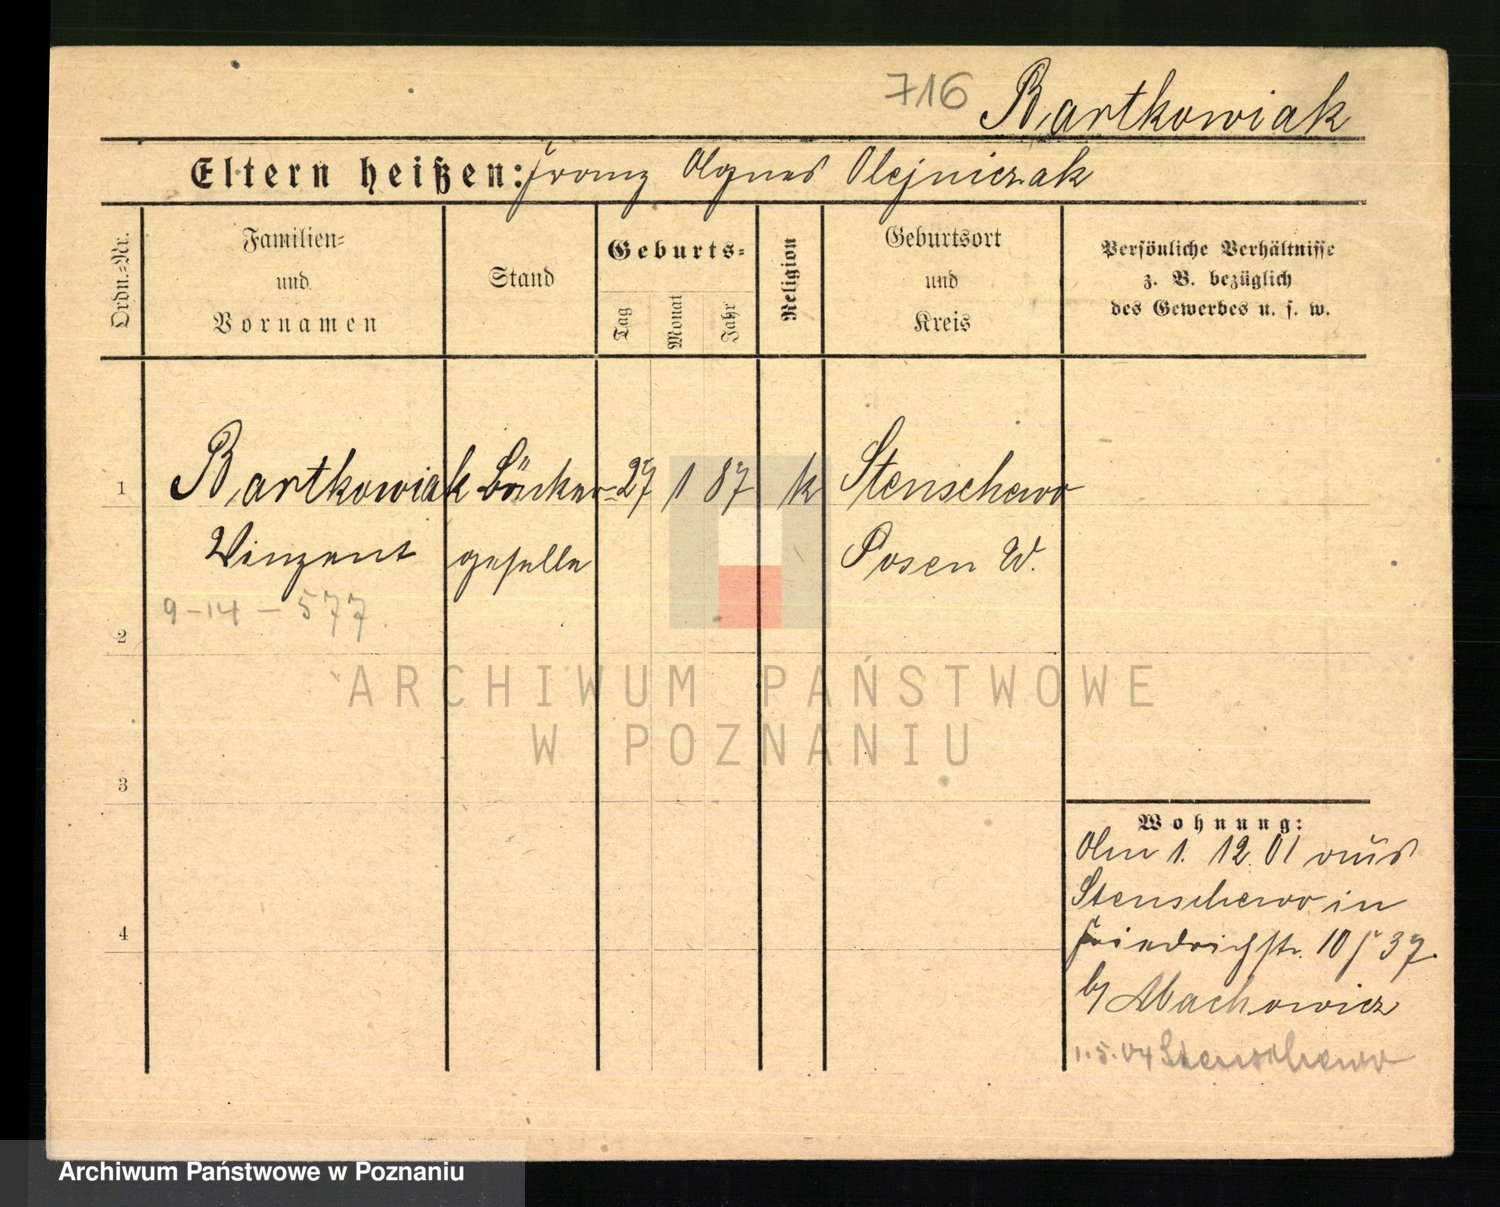 716 Bartkowiak
Eltern heißen: Franz Agnes Olejniczak
Ordn.-Nr.
Familien-
und
Vornamen
Stand
Geburts-
Tag
Monat
Jahr
Religion
Geburtsort
und
Kreis
Persönliche Verhältnisse
z. B. bezüglich
des Gewerbes u. s. w.
1 Bartkowiak Bäcker- 27 1 87 k Stenschewo
Vinzent geselle Posen W.
9-14-577
2
ARCHIWUM PAŃSTWOWE
W POZNANIU
3
Wohnung:
Am 1. 12. 01 aus
Stenschewo in
Friedrichstr. 10 37.
b/ Machowicz
1.5.04 Stenschewo
4
Archiwum Państwowe w Poznaniu